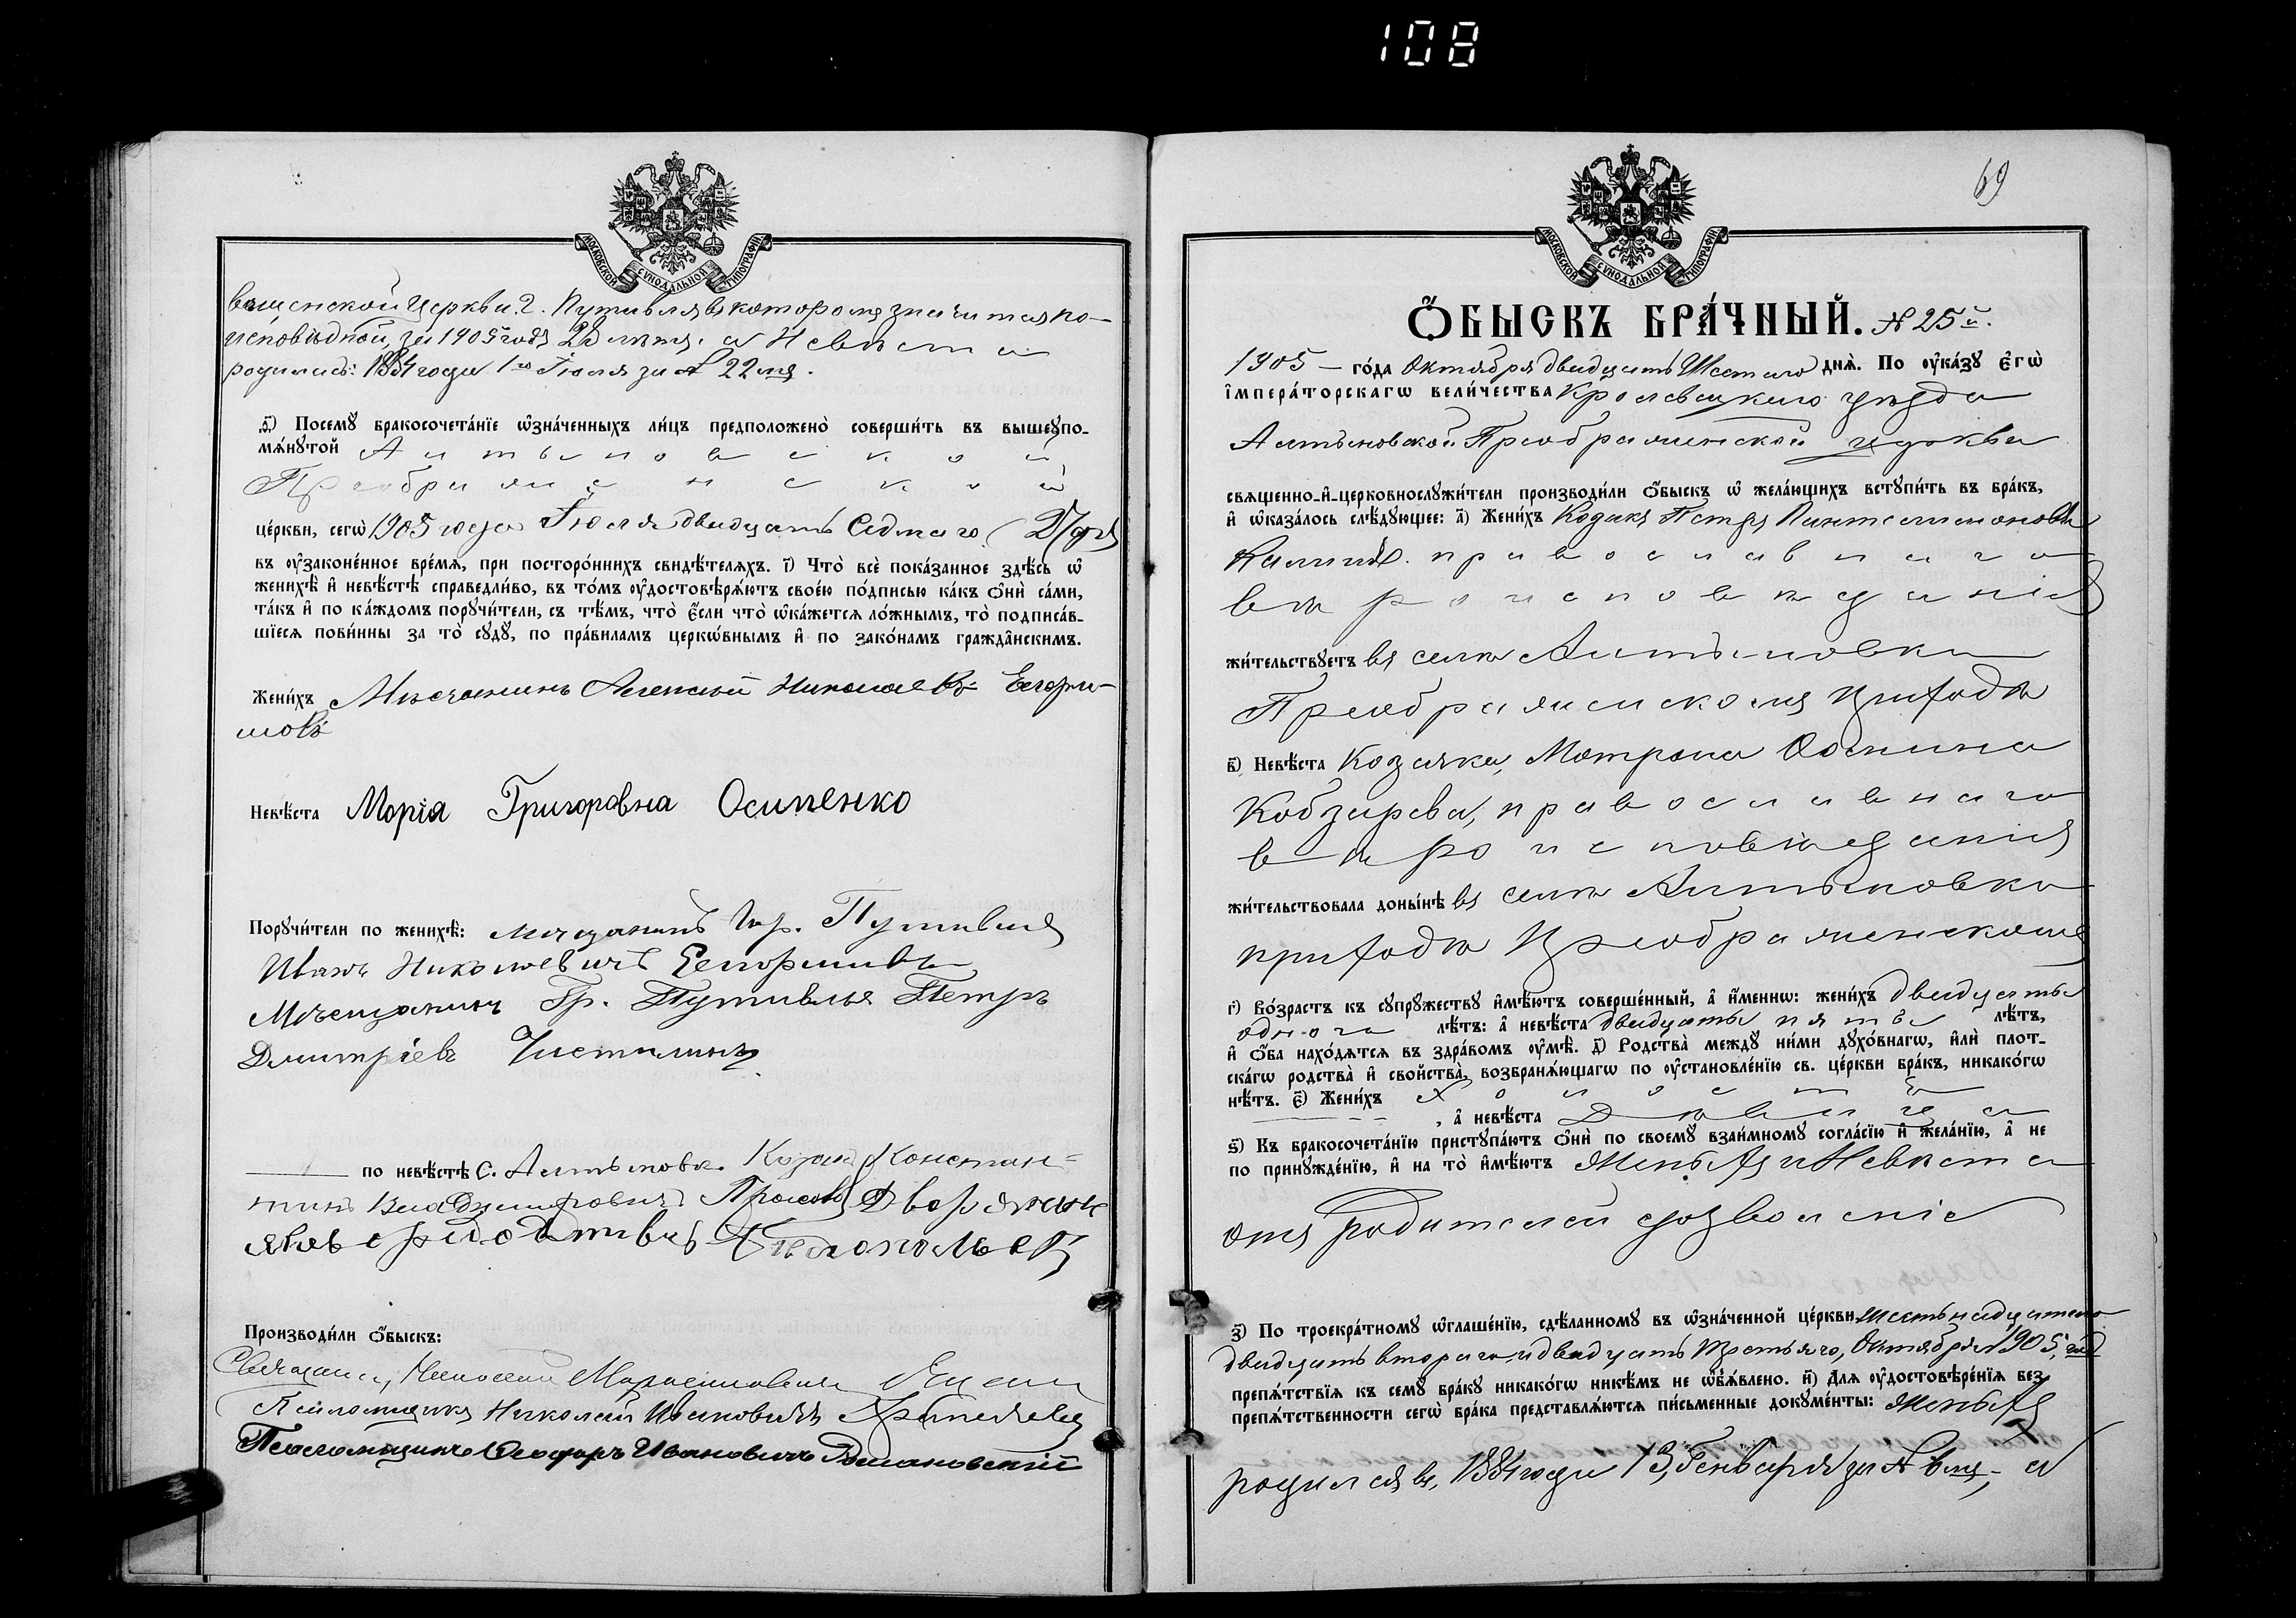 108
МОСКОВСКОЙ СѴНОДАЛЬНОЙ ТИПОГРАФІИ.
вященской Церкви г. Путивля въ которомъ значится по
исповѣдной, за 1905 годъ лѣтъ. а Невѣста
родилась: 1884 года 1го Іюля за № 22мъ.
Посемꙋ бракосочета́нїе ѡ҆зна́ченныхъ ли́цъ предположено̀ соверши́ть въ вышеꙋпо-
мѧ́нꙋтой Алтыновской
Преображенской
це́ркви, сегѡ̀ 1905 года Іюля двадцать Седмаго (27 дня)
въ ᲂу҆законе́нное вре́мѧ, при посторо́ннихъ свидѣ́телѧхъ. і҃) Что̀ всѐ пока́занное здѣ́сь ѡ҆
женихѣ̀ и҆ невѣ́стѣ справедли́во, въ то́мъ ᲂу҆достовѣрѧ́ютъ свое́ю по́дписью ка́къ ѻ҆нѝ са́ми,
та́къ и҆ по ка́ждомъ порꙋчи́тели, съ тѣ́мъ, что̀ є҆́сли что̀ ѡ҆ка́жетсѧ ло́жнымъ, то̀ подписа́в-
шїесѧ пови́нны за то̀ сꙋдꙋ̀, по пра́виламъ церкѡ́внымъ и҆ по зако́намъ гражда̂нскимъ.
Жени́хъ Мѣщанинъ Алексѣй Николаевъ
Невѣ́ста Марія Григоровна Осипенко
Порꙋчи́тели по женихѣ̀: мѣщанинъ Гор. Путивля
Иванъ Николаевичъ
Мѣщанинъ Гр. Путивля Петръ
Дмитріевъ
по невѣ́стѣ С. Алтыновки Козакъ Констан-
тинъ Владимировичъ Дворянинъ
Производи́ли ѻ҆́быскъ:
Священникъ
Псаломщикъ Николай Ивановичъ
Псаломщикъ Ѳеодоръ Ивановичъ Романовскій
69
МОСКОВСКОЙ СѴНОДАЛЬНОЙ ТИПОГРАФІИ.
Ѻ҆́БЫСКЪ БРА́ЧНЫЙ. № 25й.
1905 – го́да Октября двадцать Шестаго днѧ̀. По ᲂу҆ка́зꙋ є҆гѡ̀
і҆мпера́торскагѡ вели́чества Кролевецкаго уѣзда
Алтыновской Преображенской церкви
свѧщенно-и҆-церковнослꙋжи́тели производи́ли ѻ҆́быскъ ѡ҆ жела́ющихъ встꙋпи́ть въ бра́къ,
и҆ ѡ҆каза́лось слѣ́дꙋющее: а҃) Жени́хъ Козакъ Петръ Пантелимоновъ
православнаго
вѣроисповѣданія
жи́тельствꙋетъ въ селѣ Алтыновки
Преображенскомъ приходѣ
в҃) Невѣ́ста Козачка, Матрона Осипова
Кобзарева, православнаго
вѣроисповѣданія
жи́тельствовала доны́нѣ въ селѣ Алтыновки
приходѣ Преображенскомъ
г҃) Во́зрастъ къ сꙋпрꙋ́жествꙋ и҆мѣ́ютъ соверше́нный, а҆ и҆́меннѡ: жени́хъ двадцать
одного лѣ́тъ: а҆ невѣ́ста двадцать пять лѣ́тъ,
и҆ ѻ҆́ба нахо́дѧтсѧ въ здра́вомъ ᲂу҆мѣ̀. д҃) Родства̀ междꙋ̀ ни́ми дꙋхо́внагѡ, и҆лѝ плот-
ска́гѡ родства̀ и҆ свойства̀, возбранѧ́ющагѡ по ᲂу҆становле́нїю св. це́ркви бра́къ, никако́гѡ
нѣ́тъ. є҃) Жени́хъ холостъ
, а҆ невѣ́ста Дѣвица
ѕ҃) Къ бракосочета́нїю пристꙋпа́ютъ ѻ҆нѝ по своемꙋ̀ взаи́мномꙋ согла́сїю и҆ жела́нїю, а҆ не
по принꙋжде́нїю, и҆ на то̀ и҆мѣ́ютъ Женихъ и Невѣста
отъ родителей дозволеніе
з҃) По троекра́тномꙋ ѡ҆глаше́нїю, сдѣ́ланномꙋ въ ѡ҆зна́ченной це́ркви шестьнадцатаго
двадцать втораго, и двадцать третьяго, Октября 1905, год
препѧ́тствїѧ къ семꙋ̀ бра́кꙋ никако́гѡ никѣ́мъ не ѡ҆б̾ѧ́влено. и҃) Длѧ ᲂу҆достовѣре́нїѧ без-
препѧ́тственности сегѡ̀ бра́ка представлѧ́ютсѧ пи́сьменные докꙋме́нты: Женихъ
родился въ, 1884 году 13, Генваря за № 6мъ, а